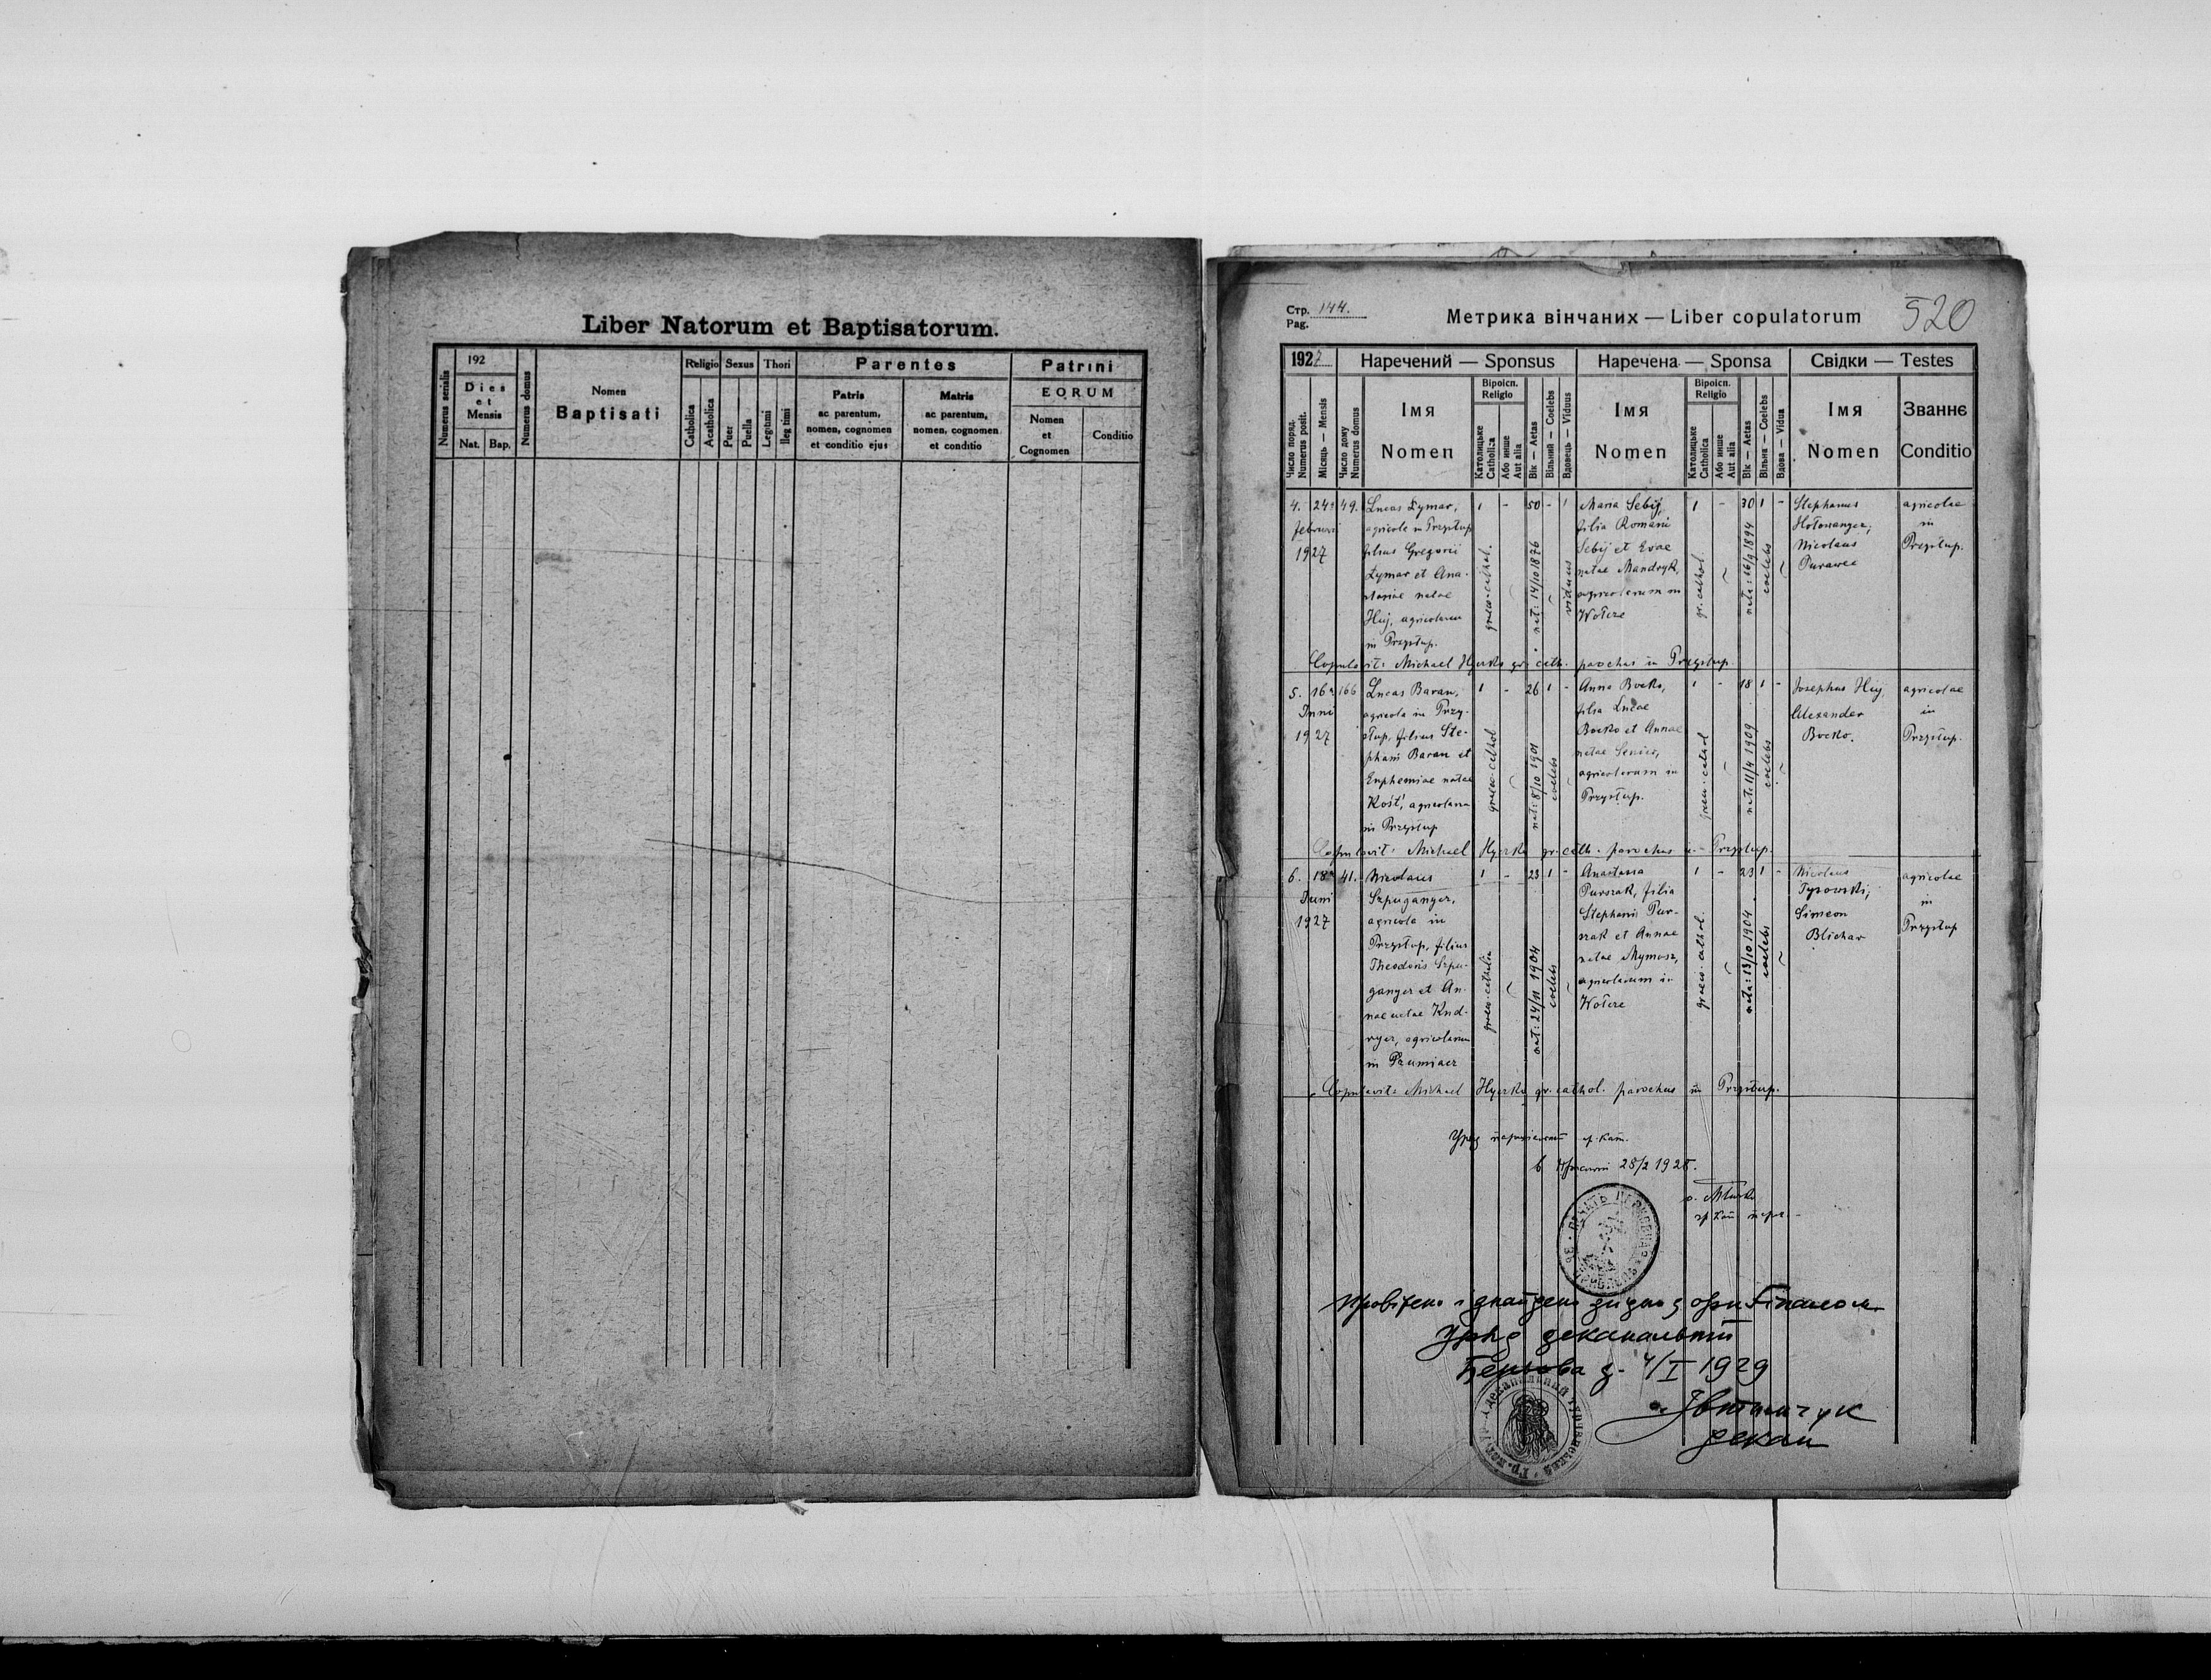 Liber Natorum et Baptisatorum.
Numerus serialis
192
Dies
et
Mensis
Nat. Bap.
Numerus domus
Nomen
Baptisati
Religio Sexus Thori
Catholica
Acatholica
Puer
Puella
Legitimi
Illegitimi
Parentes
Patris
ac parentum,
nomen, cognomen
et conditio ejus
Matris
ac parentum,
nomen, cognomen
et conditio
Patrini
EORUM
Nomen
et
Cognomen
Conditio
Стр. 144.
Pag.
Метрика вінчаних — Liber copulatorum
520
1927
Наречений — Sponsus
Наречена — Sponsa
Свідки — Testes
Число поряд.
Numerus posit.
Місяць — Mensis
Число дому
Numerus domus
Імя
Nomen
Віроісп.
Religio
Католицьке
Catholica
Або инше
Aut alia
Вік — Aetas
Вільний — Coelebs
Вдовець — Viduus
Імя
Nomen
Віроісп.
Religio
Католицьке
Catholica
Або инше
Aut alia
Вік — Aetas
Вільна — Coelebs
Вдова — Vidua
Імя
Nomen
Званнє
Conditio
4. 24a 49.
februari
1927
Lucas Łymar,
agricola in Przysłup
filius Gregorii
Łymar et Ana-
stasiae natae
Huj, agricolarum
in Przysłup.
1 - 50 - 1
graeco-cathol.
nat: 14/10 1876
viduus
Maria Sebij,
filia Romani
Sebij et Evae
natae Mandryk,
agricolarum in
Wołcze
1 - 30 1 -
gr. cathol.
nata: 26/9 1894
coelebs
Stephanus
Nicolaus
Purawec
agricolae
in
Przysłup.
Copulavit: Michael Hyrko gr. cath. parochus in Przysłup.
5. 16a 166
Junii
1927
Lucas Baran,
agricola in Przy-
słup, filius Ste-
phani Baran et
Euphemiae natae
Kość, agricolarum
in Przysłup
1 - 26 1 -
graeco-cathol
nat: 8/10 1901
coelebs
Anna Bocko,
filia Lucae
Bocko et Annae
natae Senico,
agricolarum in
Przysłup.
1 - 18 1 -
graeco-cathol
nata: 11/4 1909
coelebs
Josephus Huj
Alexander
Bocko.
agricolae
in
Przysłup.
Copulavit: Michael Hyrko gr. cath. parochus in Przysłup.
6. 18a 41.
Juni
1927
Nicolaus
Szpuganycz,
agricola in
Przysłup, filius
Theodoris Szpu-
ganycz et An-
nae natae Kud-
rycz, agricolarum
in
1 - 23 1 -
graeco-catholic
nat: 24/11 1904
coelebs
Anastasia
Purszak, filia
Stephani Pur-
szak et Annae
natae Mymosz,
agricolarum in
Wołcze
1 - 23 1 -
graeco-cathol.
nata: 13/10 1904
coelebs
Nicolaus
Tysowski,
Simeon
Blichar
agricolae
in
Przysłup
Copulavit: Michael Hyrko gr. cathol. parochus in Przysłup.
Уряд парохіяльний гр. кат.
в 28/2 1928.
гр. кат. парох
Провірено і знайдено згідно з оригіналом
Уряд деканальний
д. 4/I 1929
декан